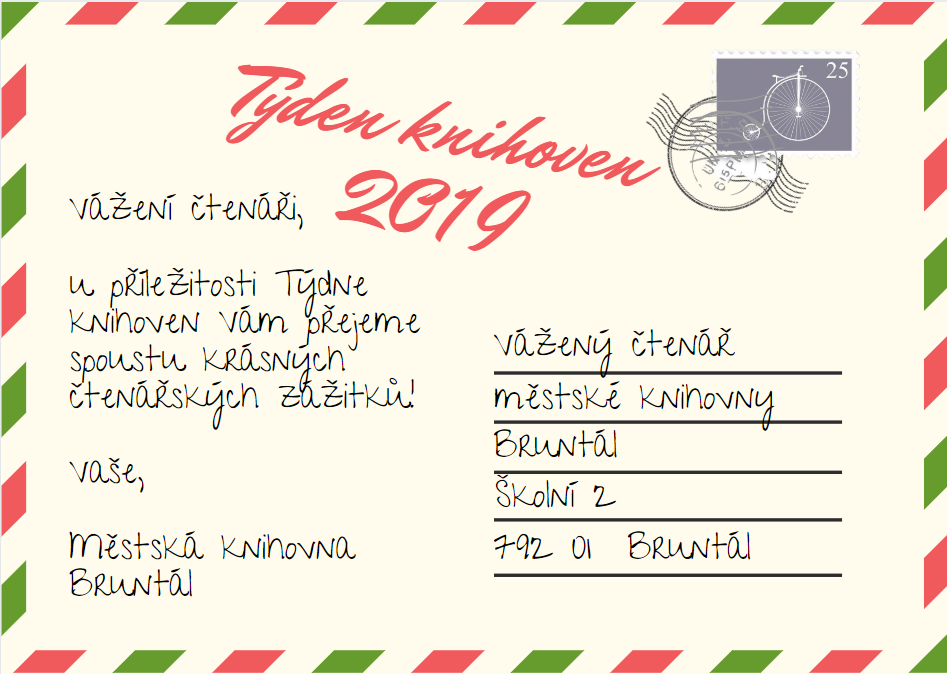 Týden knihoven
2019
25
615PM
Vážení čtenáři,
u příležitosti Týdne
knihoven Vám přejeme
spoustu krásných
čtenářských zážitků!
Vaše,
Městská knihovna
Bruntál
Vážený čtenář
městské knihovny
Bruntál
Školní 2
792 01 Bruntál